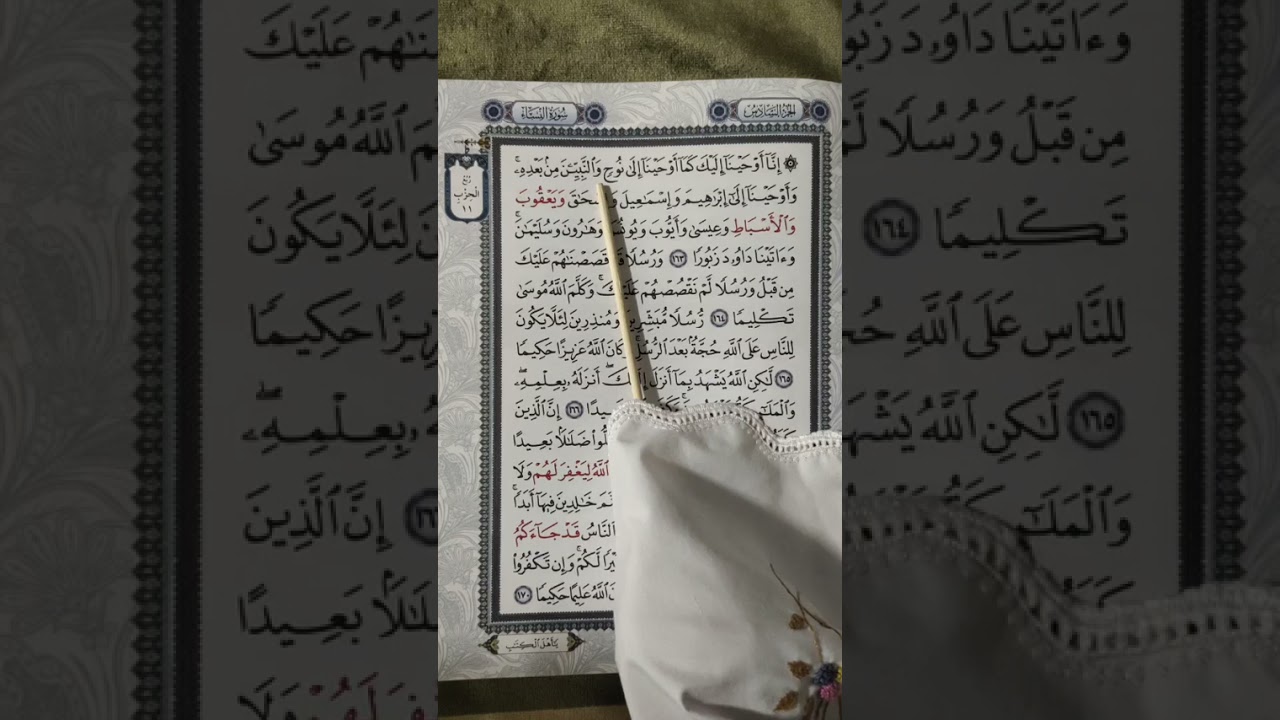 الجزء السادس
سورة النساء
ربع
الحزب
١١
۞ إِنَّآ أَوْحَيْنَآ إِلَيْكَ كَمَآ أَوْحَيْنَآ إِلَىٰ نُوحٍ وَٱلنَّبِيِّـۧنَ مِنۢ بَعْدِهِۦۚ
وَأَوْحَيْنَآ إِلَىٰٓ إِبْرَٰهِيمَ وَإِسْمَٰعِيلَ وَإِسْحَٰقَ وَيَعْقُوبَ
وَٱلْأَسْبَاطِ وَعِيسَىٰ وَأَيُّوبَ وَيُونُسَ وَهَٰرُونَ وَسُلَيْمَٰنَۚ
وَءَاتَيْنَا دَاوُۥدَ زَبُورًا ١٦٣ وَرُسُلًا قَدْ قَصَصْنَٰهُمْ عَلَيْكَ
مِن قَبْلُ وَرُسُلًا لَّمْ نَقْصُصْهُمْ عَلَيْكَۚ وَكَلَّمَ ٱللَّهُ مُوسَىٰ
تَكْلِيمًا ١٦٤ رُّسُلًا مُّبَشِّرِينَ وَمُنذِرِينَ لِئَلَّا يَكُونَ
لِلنَّاسِ عَلَى ٱللَّهِ حُجَّةٌۢ بَعْدَ ٱلرُّسُلِۚ وَكَانَ ٱللَّهُ عَزِيزًا حَكِيمًا
١٦٥ لَّٰكِنِ ٱللَّهُ يَشْهَدُ بِمَآ أَنزَلَ إِلَيْكَۖ أَنزَلَهُۥ بِعِلْمِهِۦۖ
١٦٦ إِنَّ ٱلَّذِينَ
ضَلَٰلًۢا بَعِيدًا
ٱللَّهُ لِيَغْفِرَ لَهُمْ وَلَا
خَٰلِدِينَ فِيهَآ أَبَدًاۚ
ٱلنَّاسُ قَدْ جَآءَكُمُ
لَّكُمْۚ وَإِن تَكْفُرُوا۟
ٱللَّهُ عَلِيمًا حَكِيمًا ١٧٠
يَٰٓأَهْلَ ٱلْكِتَٰبِ